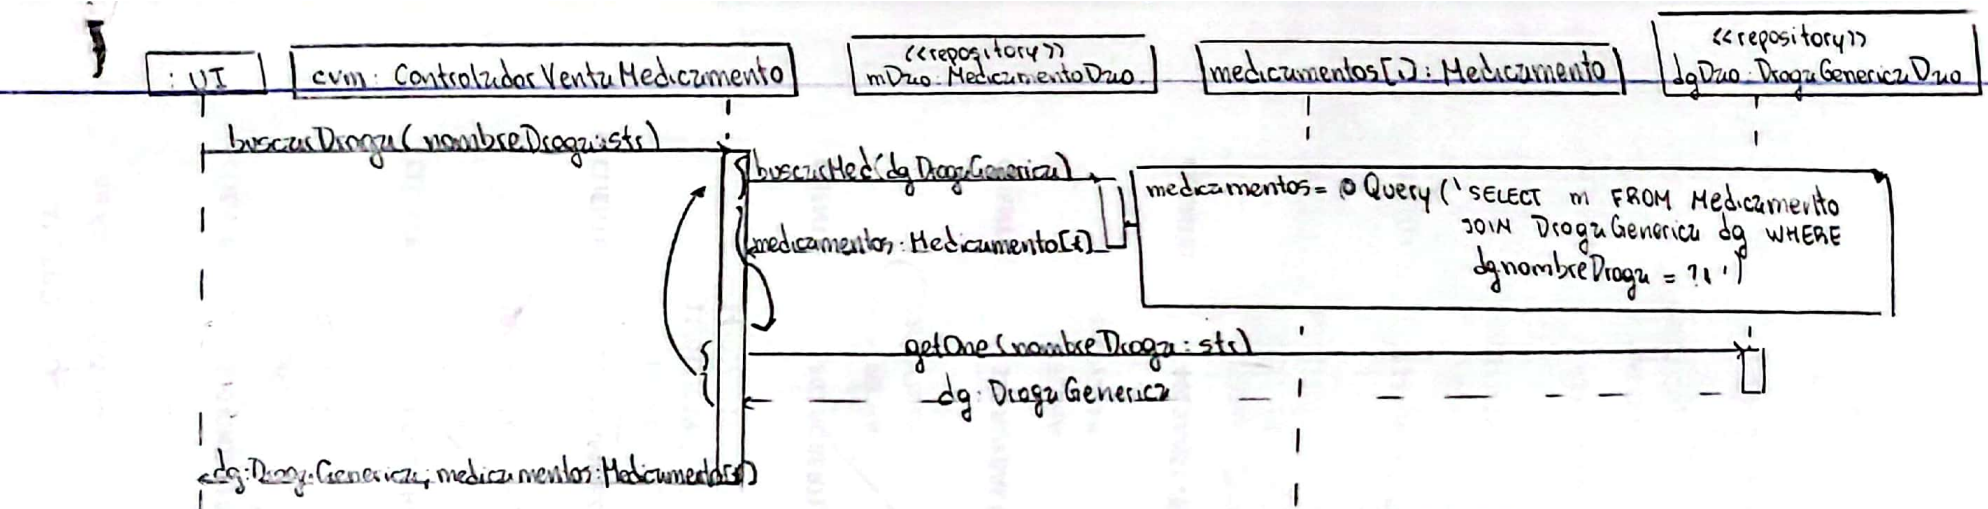 : UI
cvm : ControladorVentaMedicamento
<<repository>>
mDao : MedicamentoDao
medicamentos[.] : Medicamento
<<repository>>
dgDao : DrogaGenericaDao
buscarDroga( nombreDroga:str)
buscarMed(dg DrogaGenerica)
medicamentos= @Query('SELECT m FROM Medicamento
JOIN DrogaGenerica dg WHERE
dgnombreDroga = ?1')
medicamentos : Medicamento[*]
getOne(nombreDroga : str)
dg : DrogaGenerica
dg:DrogaGenerica, medicamentos:Medicamento[*]